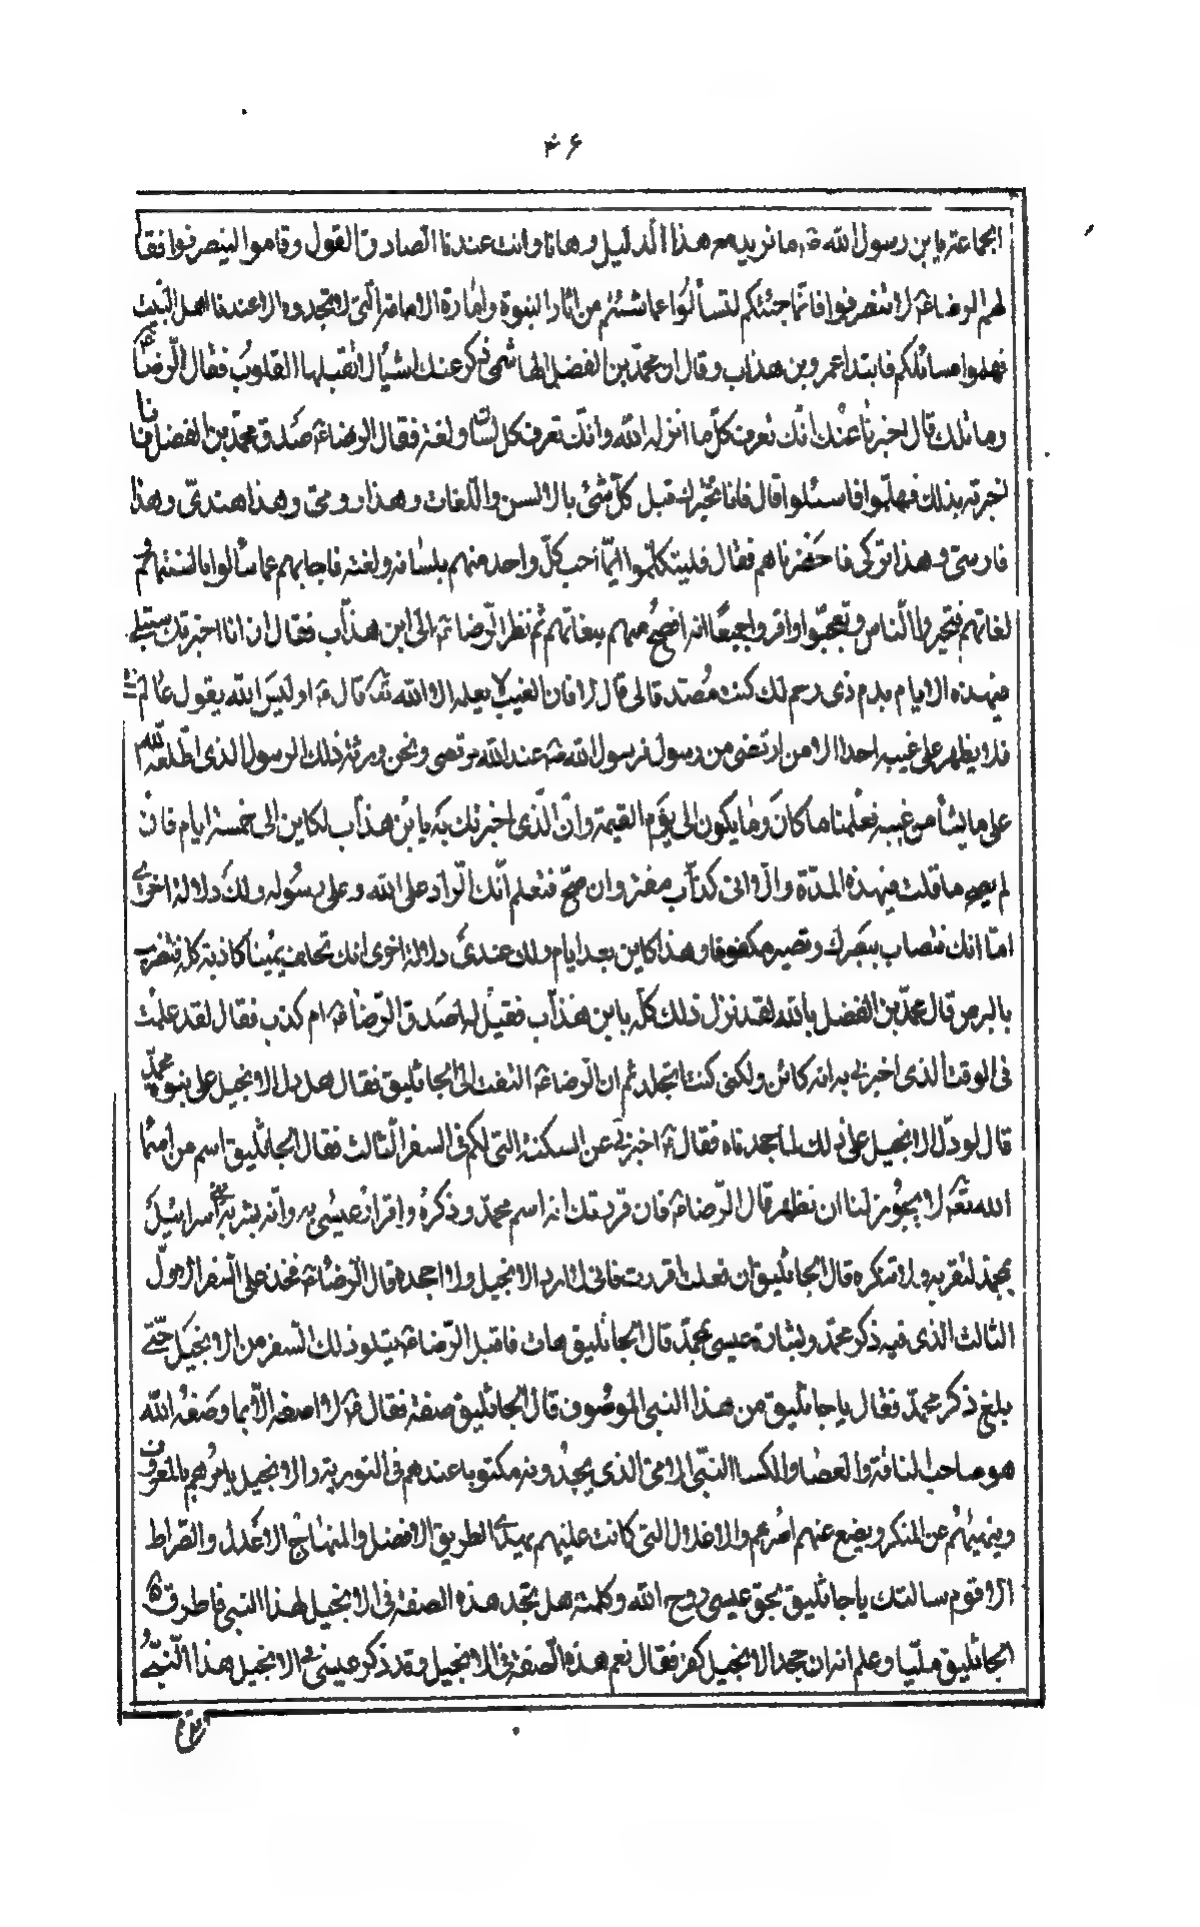 ۴۶
الجماعة يا بن رسول الله ص ما نريد مع هذا الدليل وهانا وانت عندنا الصادق القول وقاموا لينصرفوا فقا
لهم الرضا ع لا تنصرفوا فانّما جئتكم لتسألوا عما شئتم من اثار النبوة وامارة الامامة الّتى لا تجدوه الا عندنا اهل البيت
فهلموا مسائلكم فابتدا عمرو بن هذاب وقال ان محمّد بن الفضل الهاشمى ذكر عنك اشياء لا تقبلها القلوب فقال الرّضا ع
وما تلك قال اخبرنا عنك انّك تعرف كلّ ما انزله الله وانّك تعرف كل لسان ولغة فقال الرضا ع صدق محمّد بن الفضل فانا
اخبرته بذلك فهلمّوا فاسئلوا قال فانا نختبرك قبل كلّ شئ بالالسن واللّغات وهذا رومىّ وهذا هندىّ وهذا
فارسىّ وهذا تركى فاحضرناهم فقال فليتكلّموا بما احب كلّ واحد منهم بلسانه ولغته فاجابهم عما سألوا بالسنتهم
لغاتهم فتحير الناس وتعجّبوا واقروا جميعًا انه افصح منهم بلغاتهم ثم نظر الرّضا ع الى ابن هذّاب فقال ان انا اخبرتك ستبتلى
فى هذه الايام بدم ذى رحم لك كنت مُصدقا لى قال لا فان الغيب لا يعلمه الا الله تعالى قال ع اوليس الله يقول عالم الغيب
فلا يظهر على غيبه احدا الا من ارتضى من رسول فرسول الله ص عند الله مرتضى ونحن ورثة ذلك الرسول الذى اطلعه الله
على ما يشأ من غيبه فعلمنا ما كان وما يكون الى يوم القيمة وانّ الّذى اخبرتك به يا بن هذاب لكاين الى خمسة ايام فان
لم يصح ما قلت فى هذه المدّة والّا انى كذّاب مفتر وان صحّ فتعلم انّك الرّاد على الله وعلى رسوله ولك دلالة اخرى
امّا انك فتصاب ببصرك وتصير مكفوفا وهذا كاين بعد ايام ولك عندى دلالة اخرى انك تحلف يمينا كاذبة كله فتضرب
بالبرص قال محمّد بن الفضل بالله لقد نزل ذلك كلّه بابن هذّاب فقيل له اصدق الرّضا ع ام كذب فقال لقد علمت
فى الوقت الذى اخبرنى به انه كائن ولكنى كنت اتجلد ثم ان الرضا ع التفت الى الجاثليق فقال هل دل الانجيل على نبوة محمّد
قال لو دلّ الانجيل على ذلك لما جحدناه فقال ع اخبرنى عن السكتة التى لكم فى السفر الثالث فقال الجاثليق اسم من اسماء
الله تعه لا يجوز لنا ان نظهره قال الرّضا ع فان قررتك انه اسم محمّد وذكره واقرار عيسى به وانّه بشر به بنى اسرائيل
بمحمد لتقر به ولا تنكره قال الجاثليق ان فعلت اقررت فانى لا ارد الانجيل ولا اجحده قال الرضا ع فخذ على السفر الاول
الثالث الذى فيه ذكر محمّد وبشارة عيسى بمحمّد قال الجاثليق هات فاقبل الرّضا ع يتلو ذلك السفر من الانجيل حتّى
بلغ ذكر محمّد فقال يا جاثليق من هذا النبى الموصوف قال الجاثليق صفه فقال ع لا اصفه الّا بما وصفه الله
هو صاحب الناقة والعصا والكسا النبّى الامى الذى يجدونه مكتوبا عندهم فى التورية والانجيل يامرهم بالمعروف
وينهيهم عن المنكر ويضع عنهم اصرهم والاغلال التى كانت عليهم يهدى الطريق الافضل والمنهاج الاعدل والصّراط
الاقوم سالتك يا جاثليق بحق عيسى روح الله وكلمته هل تجد هذه الصفة فى الانجيل لهذا النبى فاطرق
الجاثليق مليّا وعلم انه ان جحد الانجيل كفر فقال نعم هذه الصفة فى الانجيل وقد ذكر عيسى فى الانجيل هذا النّبى